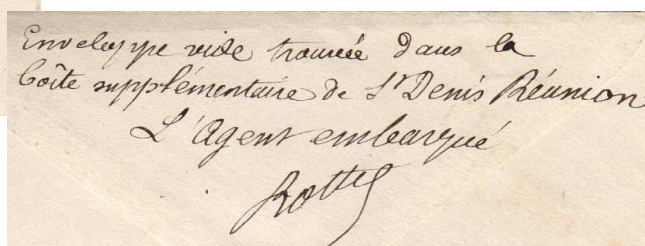 Enveloppe vide trouvée dans la
boîte supplémentaire de St Denis Réunion
L'Agent embarqué